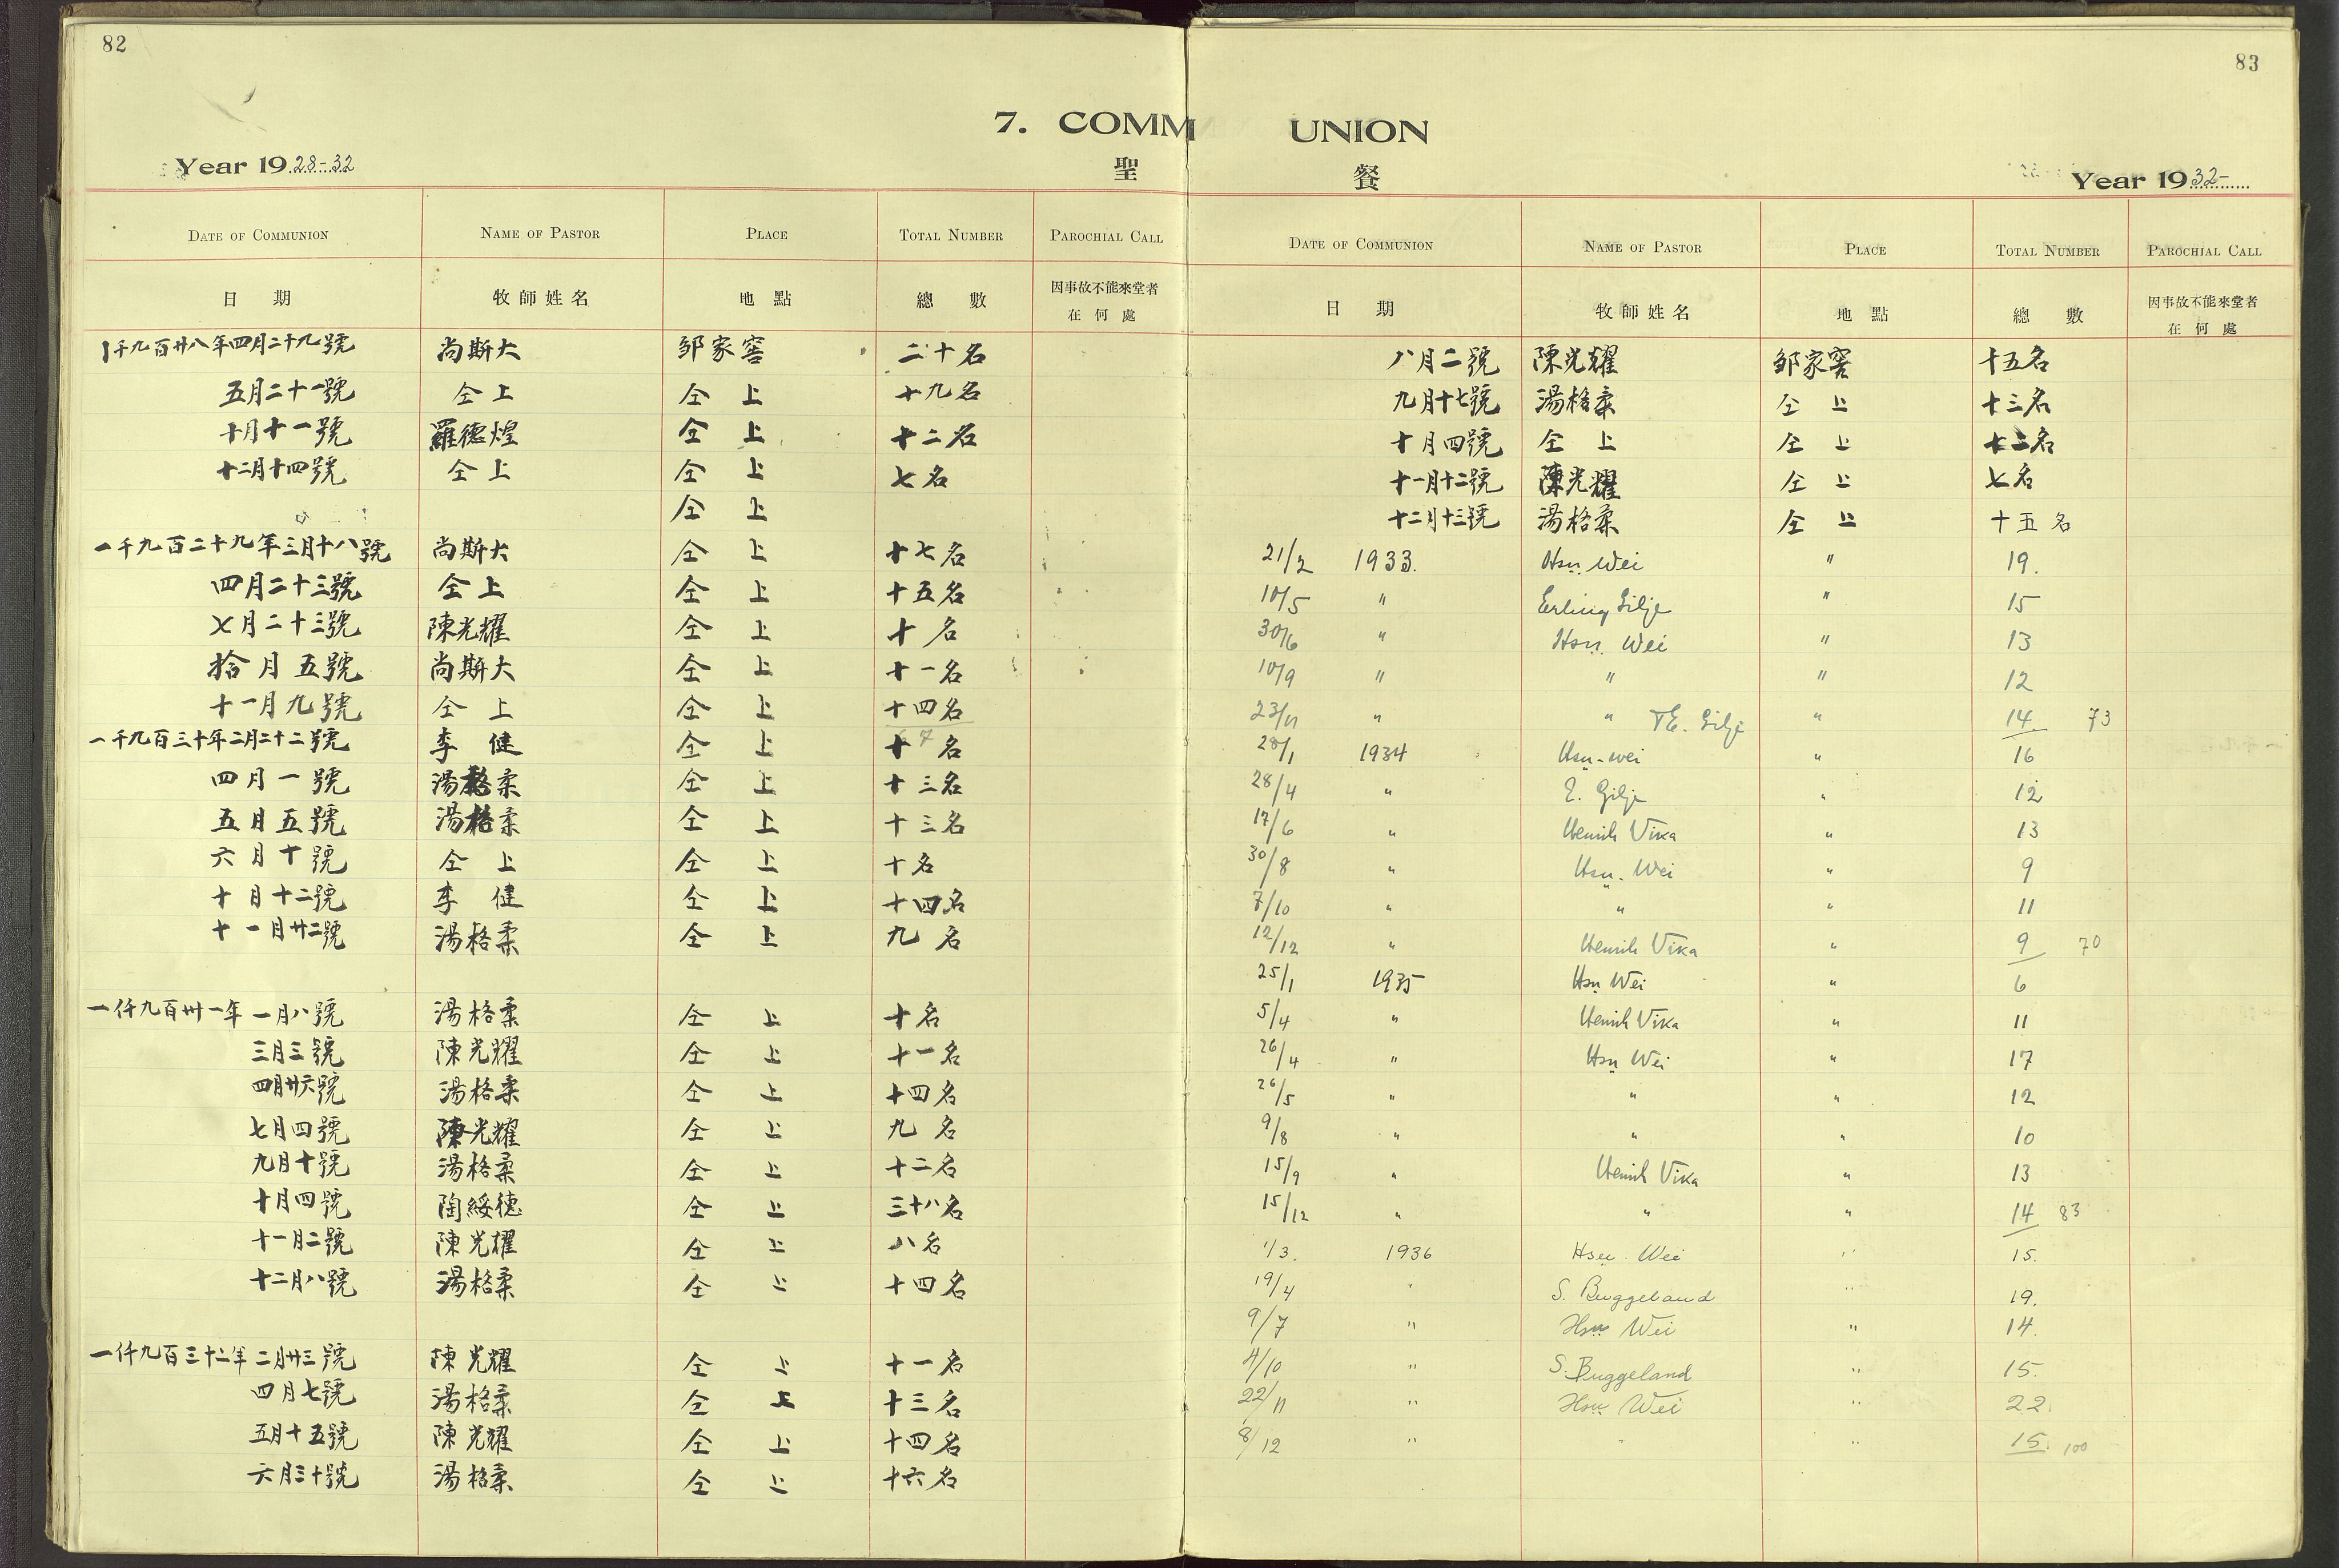 82
7. COMM
Year 19 28-32
聖
DATE OF COMMUNION NAME OF PASTOR PLACE TOTAL NUMBER PAROCHIAL CALL
日 期 牧師姓名 地點 總數 因事故不能來堂者
在何處
1千九百廿八年四月二十九號 尚斯大 邹家窖 二十名
五月二十一號 仝上 仝上 十九名
十月十一號 羅德煌 仝上 十二名
十二月十四號 仝上 仝上 七名
仝上
一千九百二十九年三月十八號 尚斯大 仝上 十七名
四月二十三號 仝上 仝上 十五名
七月二十三號 陳光耀 仝上 十名
拾月五號 尚斯大 仝上 十一名
十一月九號 仝上 仝上 十四名
一千九百三十年二月二十二號 李健 仝上 十名
四月一號 湯格柔 仝上 十三名
五月五號 湯格柔 仝上 十三名
六月十號 仝上 仝上 十名
十月十二號 李健 仝上 十四名
十一月廿二號 湯格柔 仝上 九名
一仟九百卅一年一月八號 湯格柔 仝上 十名
三月三號 陳光耀 仝上 十一名
四月廿六號 湯格柔 仝上 十四名
七月四號 陳光耀 仝上 九名
九月十號 湯格柔 仝上 十二名
十月四號 陶綏德 仝上 三十八名
十一月二號 陳光耀 仝上 八名
十二月八號 湯格柔 仝上 十四名
一仟九百三十二年二月廿三號 陳光耀 仝上 十一名
四月七號 湯格柔 仝上 十三名
五月十五號 陳光耀 仝上 十四名
六月三十號 湯格柔 仝上 十六名
83
UNION
餐
Year 19 32-
DATE OF COMMUNION NAME OF PASTOR PLACE TOTAL NUMBER PAROCHIAL CALL
日 期 牧師姓名 地點 總數 因事故不能來堂者
在何處
八月二號 陳光耀 邹家窖 十五名
九月十七號 湯格柔 仝上 十三名
十月四號 仝上 仝上 十二名
十一月十二號 陳光耀 仝上 七名
十二月十三號 湯格柔 仝上 十五名
21/2 1933. Hsu Wei " 19.
10/5 " Erling Gilje " 15
30/6 " Hsu. Wei " 13
10/9 " " " 12
23/11 " " E. Gilje " 14 73
28/1 1934 Hsu-wei " 16
28/4 " E. Gilje " 12
17/6 " Henrik Vika " 13
30/8 " Hsu. Wei " 9
7/10 " " " 11
12/12 " Henrik Vika " 9 70
25/1 1935 Hsu Wei " 6
5/4 " Henrik Vika " 11
26/4 " Hsu Wei " 17
26/5 " " " 12
9/8 " " " 10
15/9 " Henrik Vika " 13
15/12 " " " 14 83
1/3. 1936 Hsu. Wei " 15.
19/4 " S. Buggeland " 19.
9/7 " Hsu Wei " 14.
4/10 " S. Buggeland " 15.
22/11 " Hsu Wei " 22.
8/12 " " " 15. 100